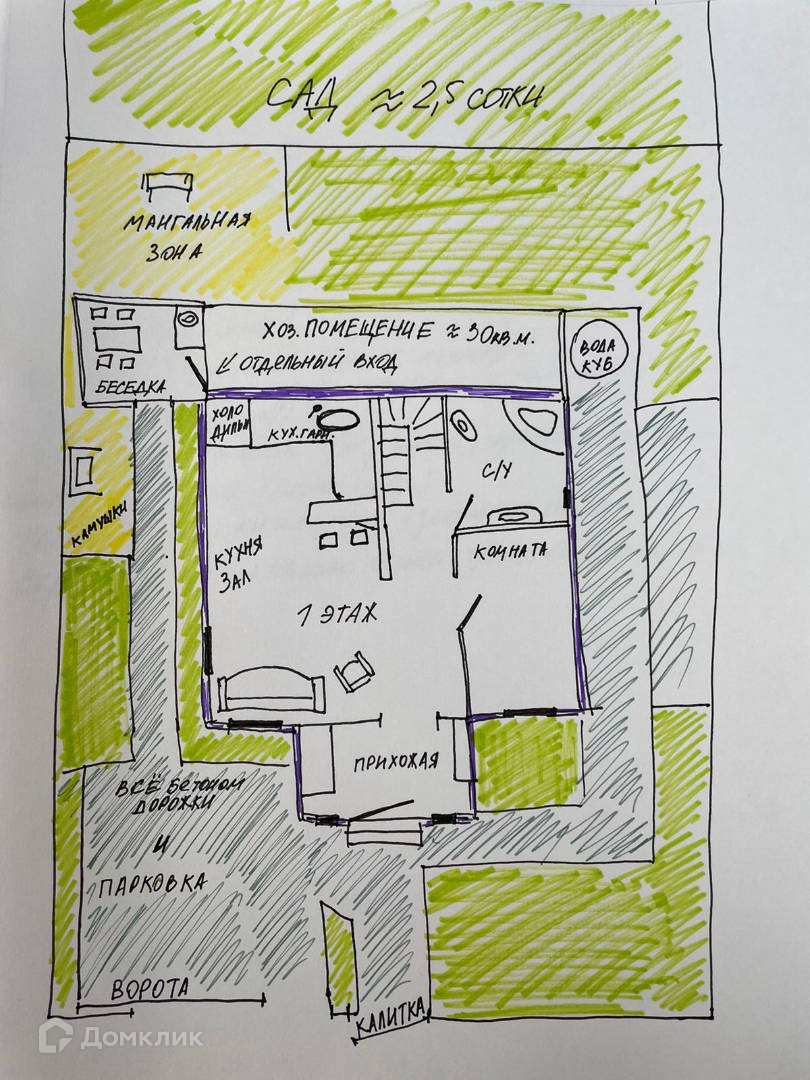 САД ≈ 2,5 СОТКИ
МАНГАЛЬНАЯ
ЗОНА
ХОЗ. ПОМЕЩЕНИЕ ≈ 30 КВ.М.
ОТДЕЛЬНЫЙ ВХОД
ВОДА
КУБ
БЕСЕДКА
ХОЛО
ДИЛЬН
КУХ.ГАРН.
С/У
КАМУШКИ
КУХНЯ
ЗАЛ
КОМНАТА
1 ЭТАЖ
ПРИХОЖАЯ
ВСЁ БЕТОНОМ
ДОРОЖКИ
И
ПАРКОВКА
ВОРОТА
КАЛИТКА
Домклик